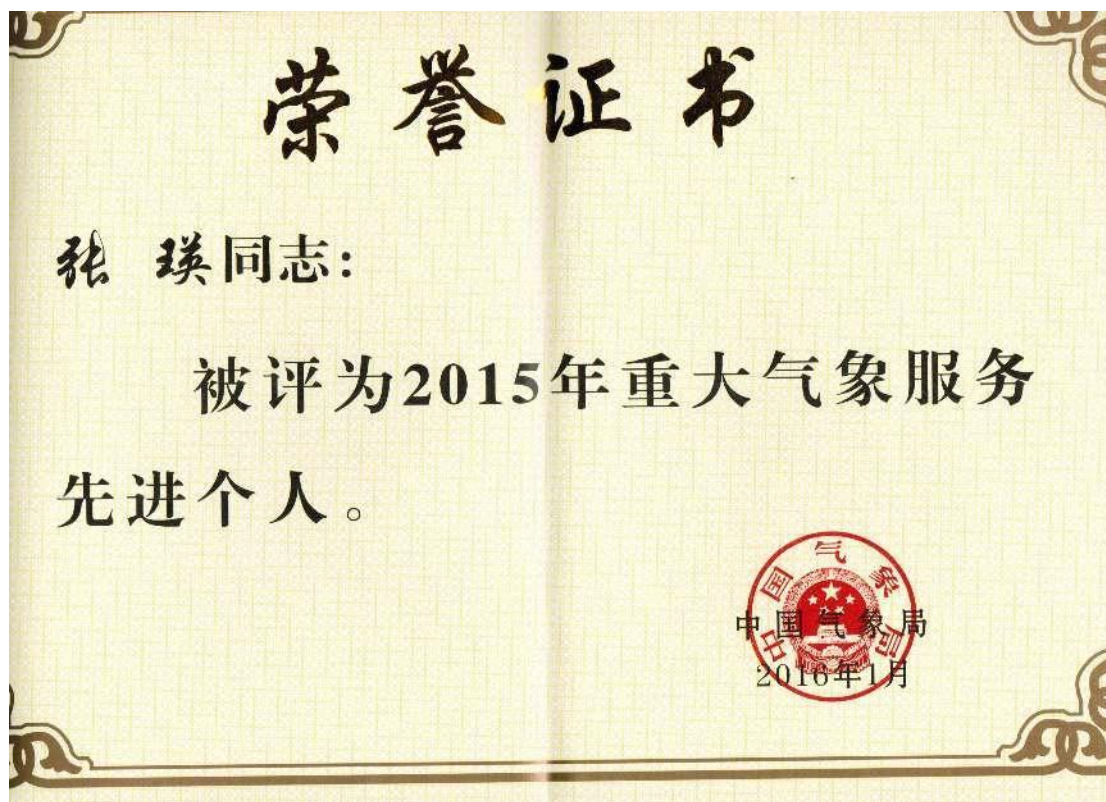 荣誉证书
张 瑛同志:
被评为2015年重大气象服务
先进个人。
中国气象局
中国气象局
2016年1月